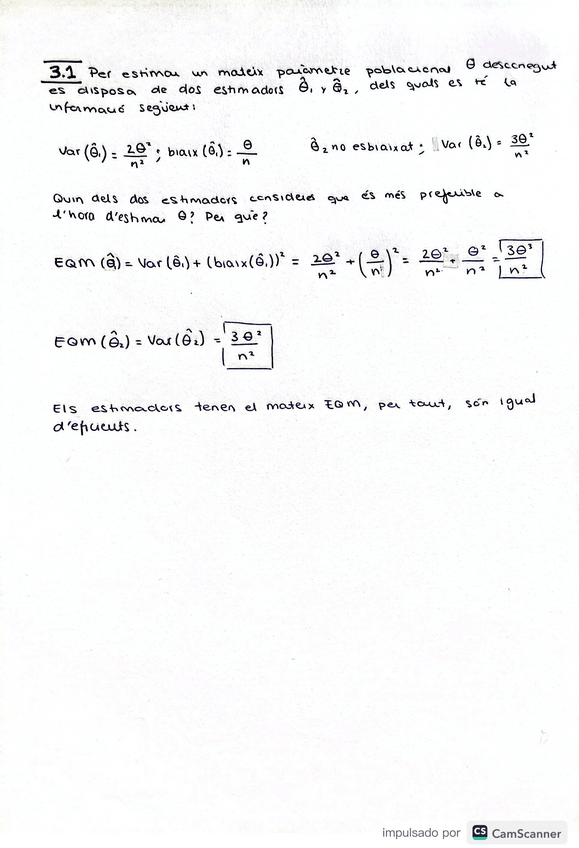 3.1 Per estimar un mateix paràmetre poblacional θ desconegut
es disposa de dos estimadors θ̂₁ y θ̂₂, dels quals es té la
informació següent:
Var(θ̂₁) = 2θ²/n² ; biaix(θ̂₁) = θ/n θ̂₂ no esbiaixat ; Var(θ̂₂) = 3θ²/n²
Quin dels dos estimadors consideres que és més preferible a
l'hora d'estimar θ? Per què?
EQM(θ̂₁) = Var(θ̂₁) + (biaix(θ̂₁))² = 2θ²/n² + (θ/n)² = 2θ²/n² + θ²/n² = 3θ²/n²
EQM(θ̂₂) = Var(θ̂₂) = 3θ²/n²
Els estimadors tenen el mateix EQM, per tant, són igual
d'eficients.
impulsado por CS CamScanner